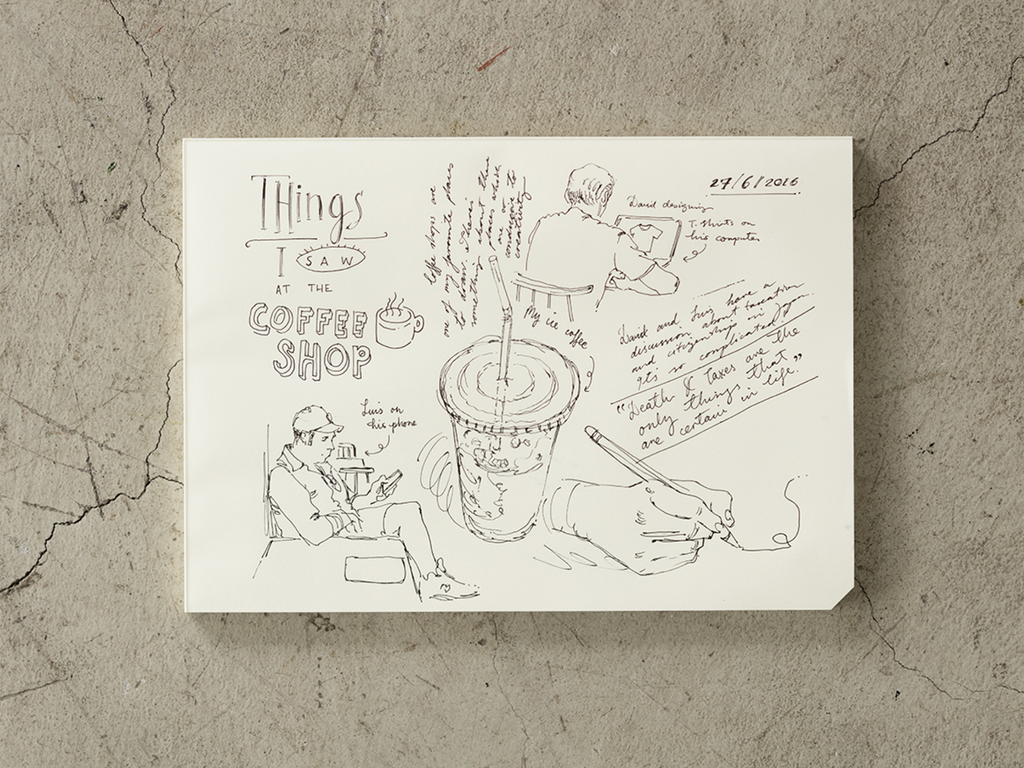 Things
I SAW
AT THE
COFFEE
SHOP
Coffee shops are
one of my favourite places
to draw. There's
something about them
creativity
27/6/2016
David designing
T-Shirts on
his computer
My ice coffee
David and Luis have a
discussion about taxation
and citizenship in
It's so complicated!
"Death & taxes are the
only things that
are certain in life."
Luis on
his phone